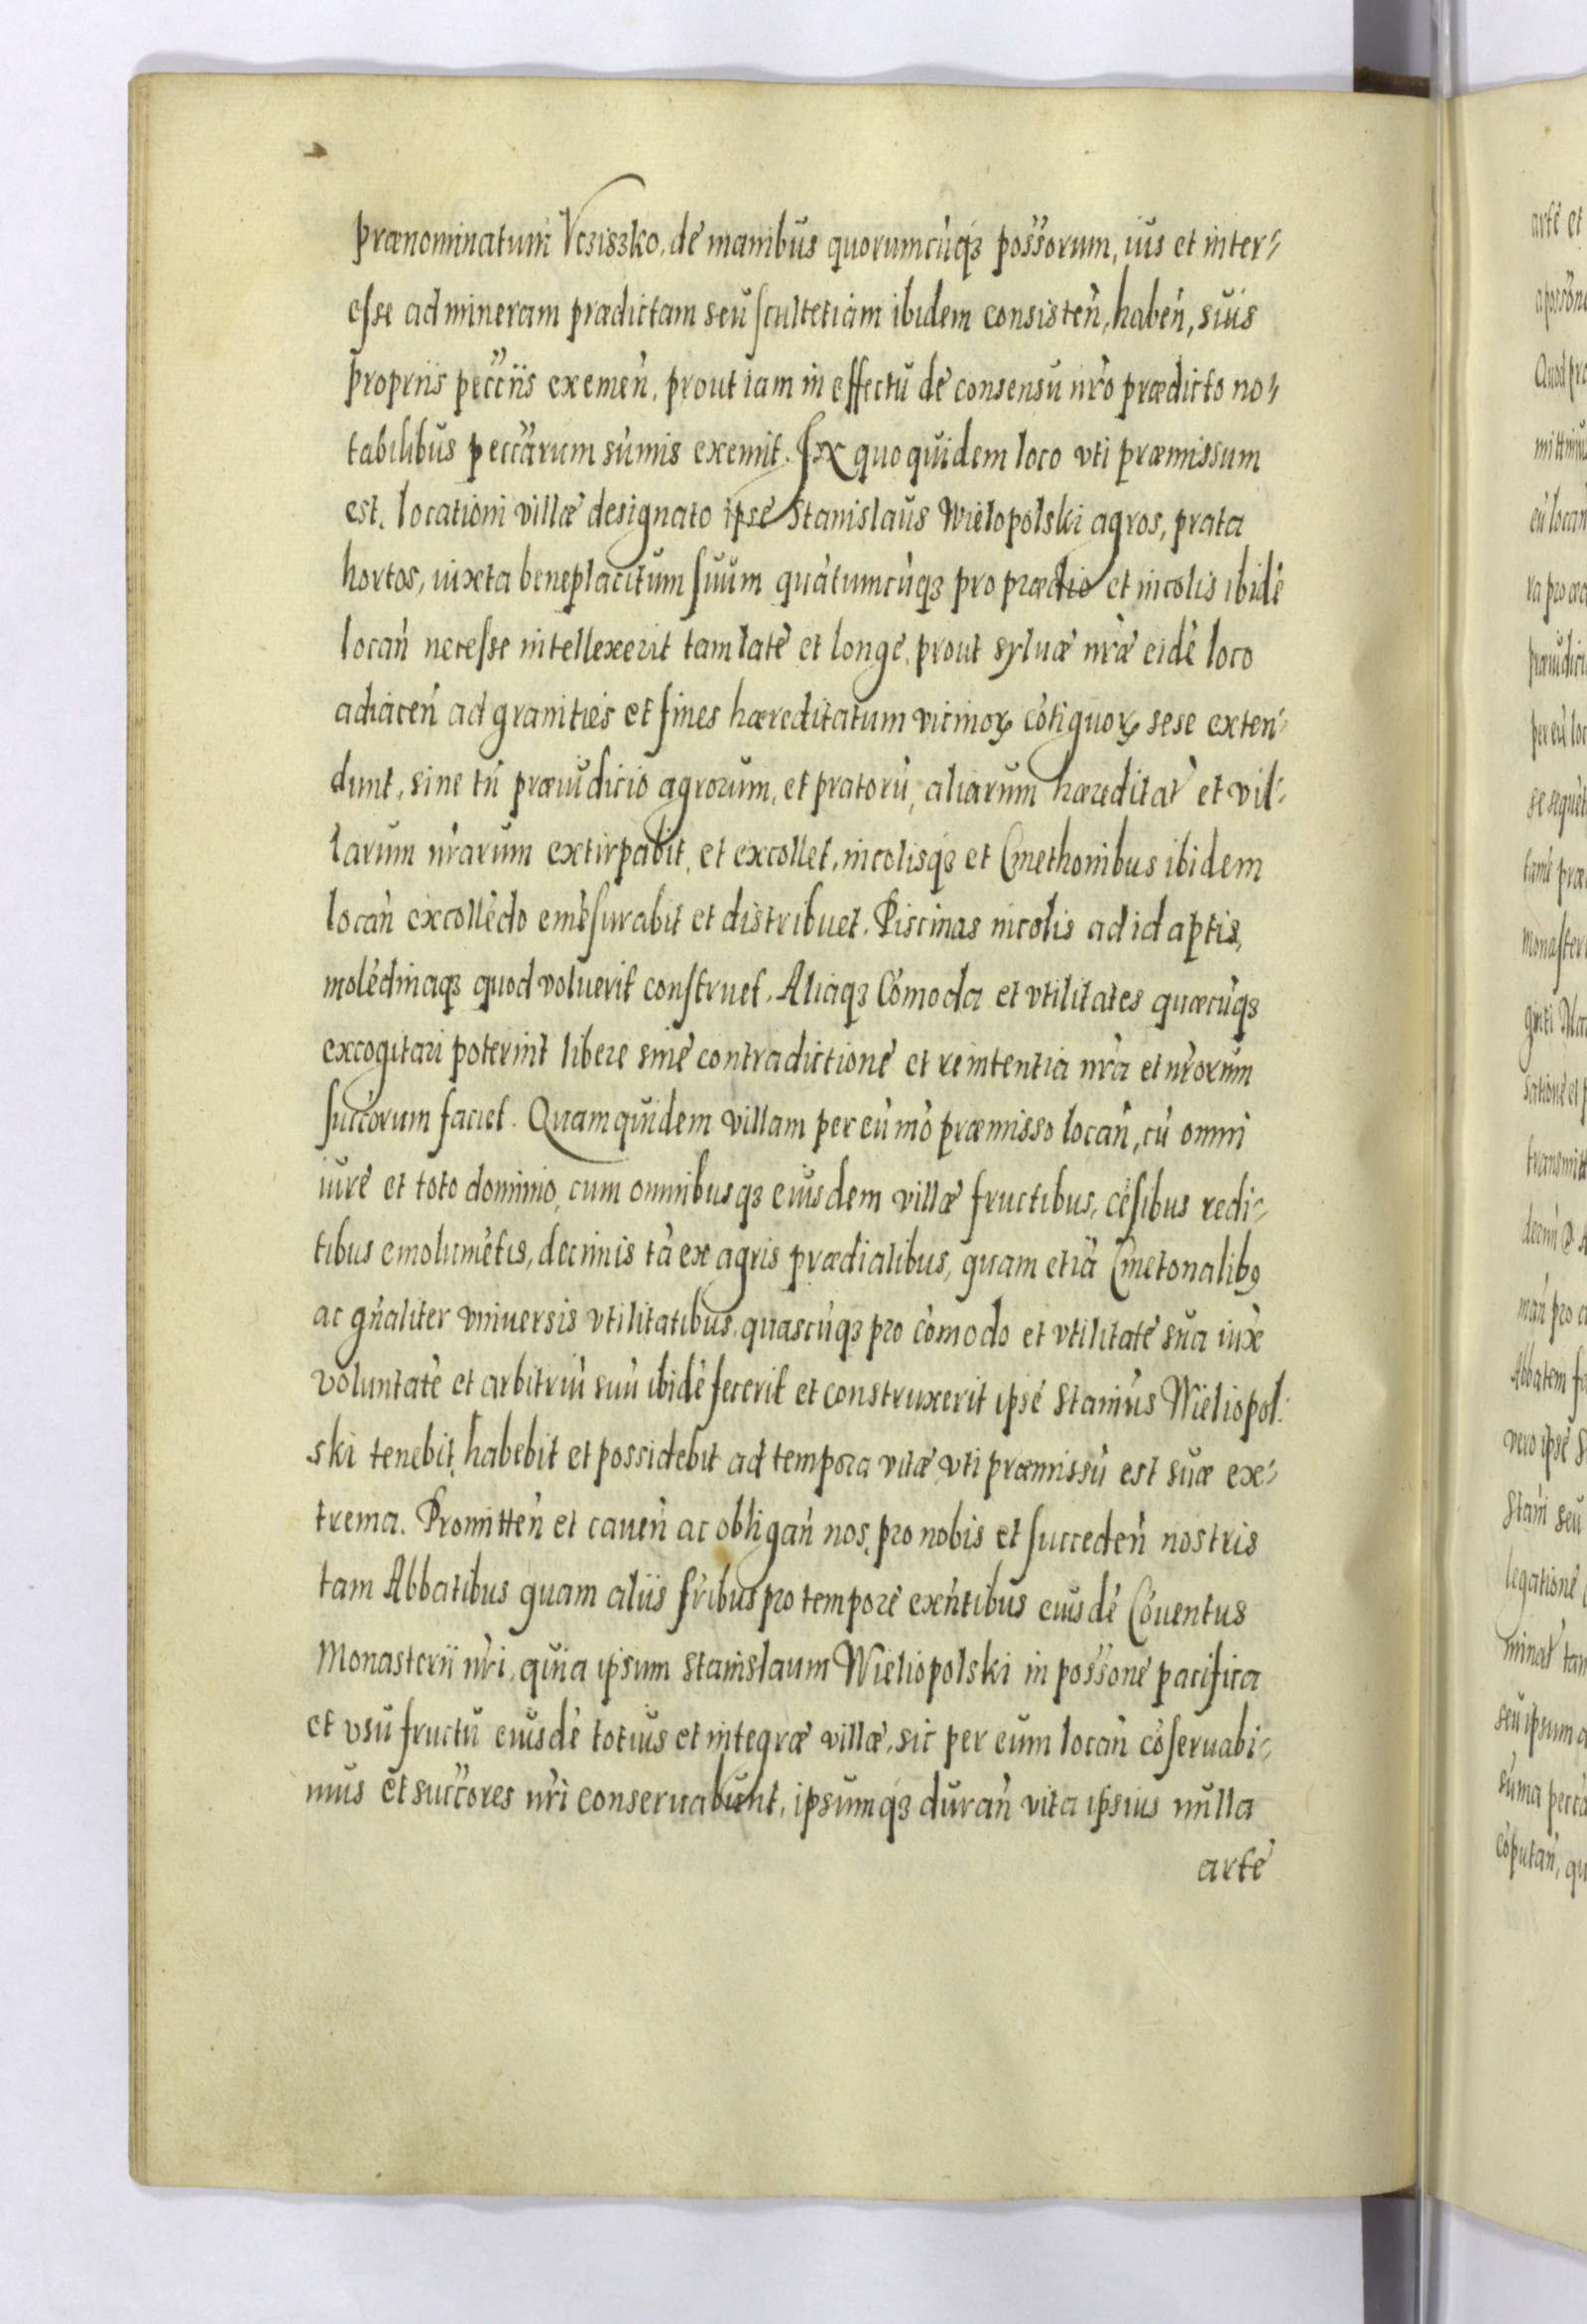 prænominatum Vcziszko, de manibus quorumcūqʒ possorum, ius et inter-
esse ad mineram prædictam seu scultetiam ibidem consisteñ, habeñ, suis
propriis peccūs exemeñ, prout iam in effectu de consensu nr̃o prædicto no-
tabilibus peccarum sum̃is exemit. Ex quo quidem loco vti præmissum
est, locationi villæ designato ipse Stanislaus Wielopolski agros, prata
hortos, iuxta beneplacitum suum quātumcūqʒ pro prædio et incolis ibidē
locañ necesse intellexerit tam late et longe, prout syluæ nr̃æ eidē loco
adiaceñ ad granities et fines hæreditatum vicinoꝝ cōtiguoꝝ sese exten-
dunt, sine tñ præiudicio agrorum, et pratorū, aliarum hæreditat̃ et vil-
larum nr̃arum extirpabit, et excollet, incolisqʒ et Cmethonibus ibidem
locañ excollēdo emēsurabit et distribuet. Piscinas incolis ad id aptis,
molēdinaqʒ quod voluerit construet. Aliaqʒ Cōmoda et vtilitates quæcūqʒ
excogitari poterint libere sine contradictione et reintentia nr̃a et nr̃orum
succorum faciet. Quam quidem villam per eū mō præmisso locañ, cū omni
iure et toto dominio, cum omnibusqʒ eiusdem villæ fructibus, cēsibus redi-
tibus emolumētis, decimis tā ex agris prædialibus, quam etiā Cmetonalibꝯ
ac gñaliter vniuersis vtilitatibus, quascūqʒ pro cōmodo et vtilitate sua iux̃
voluntatē et arbitriū suū ibidē fecerit et construxerit ipse Stanius Wieliopol-
ski tenebit, habebit et possidebit ad tempora vitæ vti præmissū est suæ ex-
trema. Promitteñ et caueñ ac obligañ nos, pro nobis et succedeñ nostris
tam Abbatibus quam aliis fr̃ibus pro tempore exñtibus eiusdē Cōuentus
Monasterii nr̃i, quia ipsum Stanislaum Wieliopolski in possone pacifica
et vsufructu eiusdē totius et integræ villæ, sic per eum locañ cōseruabi-
mus et succores nr̃i conseruabunt, ipsumqʒ durañ vita ipsius nulla
arte